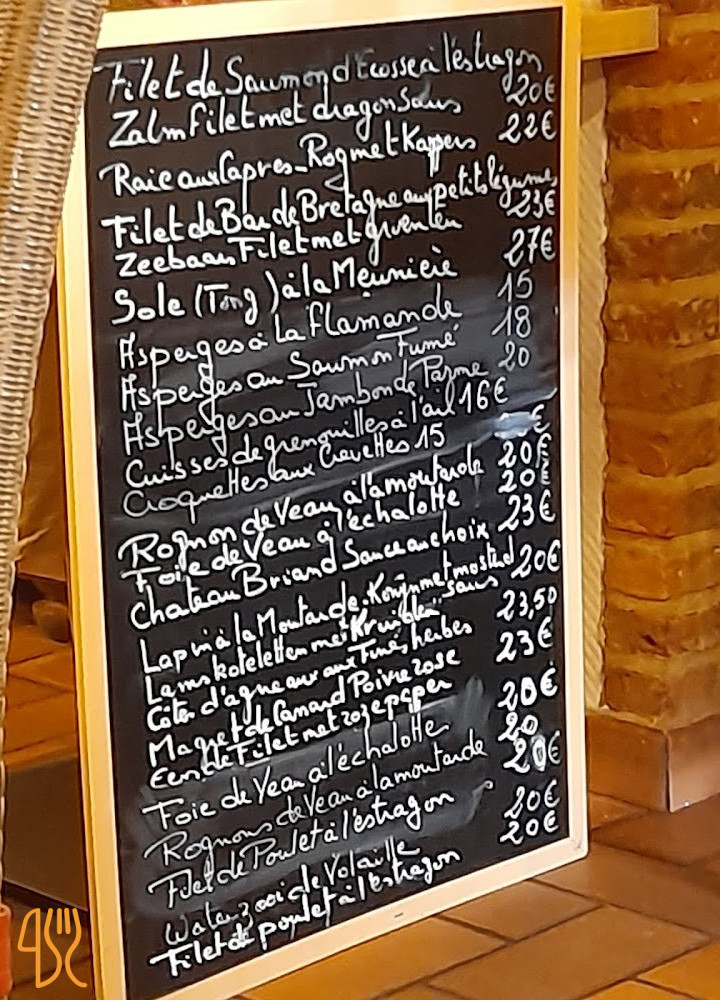 Filet de Saumon d'Ecosse à l'éstragon
Zalmfilet met dragon Saus 20€
Raie aux Capres - Rog met Kappers 22€
Filet de Bar de Bretagne aux petits légumes
Zeebaars Filet met groenten 23€
Sole (Tong) à la Meunière 27€
Asperges à la flamande 15
Asperges au Saumon Fumé 18
Asperges au Jambon de Parme 20
Cuisses de grenouilles à l'ail 16€
Croquettes aux Crevettes 15
Rognon de Veau à la moutarde 20€
Foie de Veau à l'échalotte 20
Chateau Briand Sauce au choix 23€
Lapin à la Moutarde, Konijn met mosterd Saus 20€
Lamskoteletten met Kruiden 23,50
Côtes d'agneaux aux Fine, herbes
Magret de Canard Poivre rose 23€
Eende Filet met roze peper
Foie de Veau à l'échalotte 20€
Rognons de Veau à la moutarde 20
Filet de Poulet à l'éstragon 20€
Waterzooi de Volaille 20€
Filet de poulet à l'estragon 20€